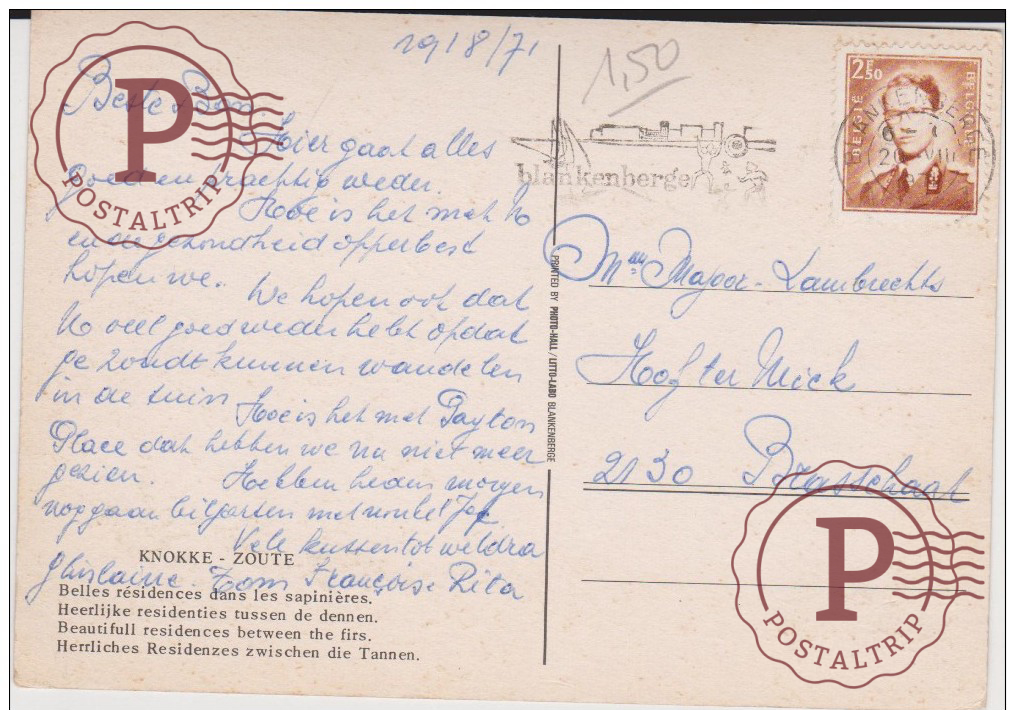 1918/71
1,50
Beste Bon
Hier gaat alles
goed en prachtig weder.
Hoe is het met U
en de gezondheid opperbest
hopen we. We hopen ook dat
U veel goed weder hebt opdat
ge zoudt kunnen wandelen
in de tuin Hoe is het met Payton
Place dat hebben we nu niet meer
gezien. Hebben heden morgen
nog gaan biljarten met nonkel Jef
Vele kussen tot weldra
Ghislaine. Tom Françoise Rita
KNOKKE - ZOUTE
Belles résidences dans les sapinières.
Heerlijke residenties tussen de dennen.
Beautifull residences between the firs.
Herrliches Residenzes zwischen die Tannen.
PRINTED BY PHOTO-HALL/LITTO-LABO BLANKENBERGE
blankenberge
2F50
BELGIË
BELGIQUE
BLANKENBERGE
VIII
Major-Lambrechts
Hof ter Mick
2130 Brasschaat
P
POSTALTRIP
P
POSTALTRIP